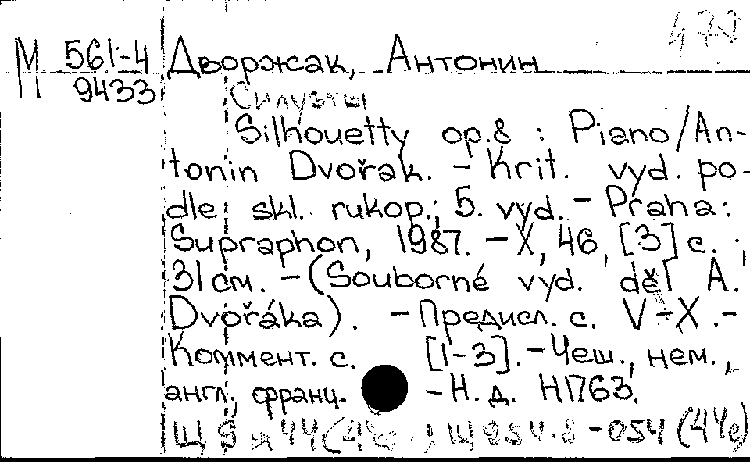 М 561-4 Дворжак, Антонин
9433
Силуэты
Silhouetty op.8 : Piano/An-
tonin Dvořak. - Krit. vyd. po-
dle skl. rukop.; 5. vyd. - Praha:
Supraphon, 1987. - X, 46, [3] с. ;
31 см. - (Souborné vyd. děl A.
Dvořáka). - Предисл. с. V-X. -
Коммент. с. [1-3]. - Чеш., нем.,
англ., франц. - Н. д. H1763.
-054 (44e)